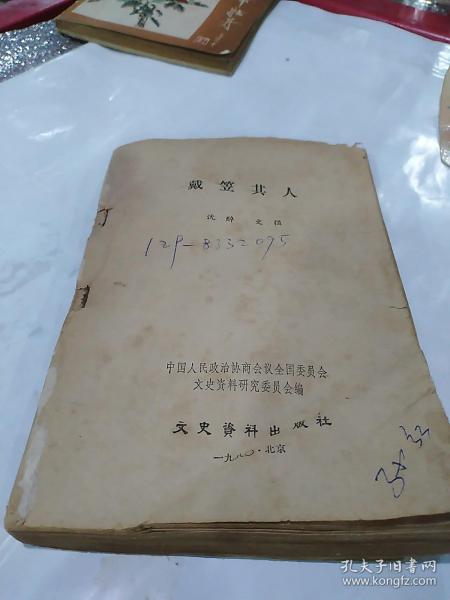 戴笠其人
沈醉 文强
129-8332095
中国人民政治协商会议全国委员会
文史资料研究委员会编
文史資料出版社
一九八〇·北京
孔夫子旧书网
www.kongfz.com